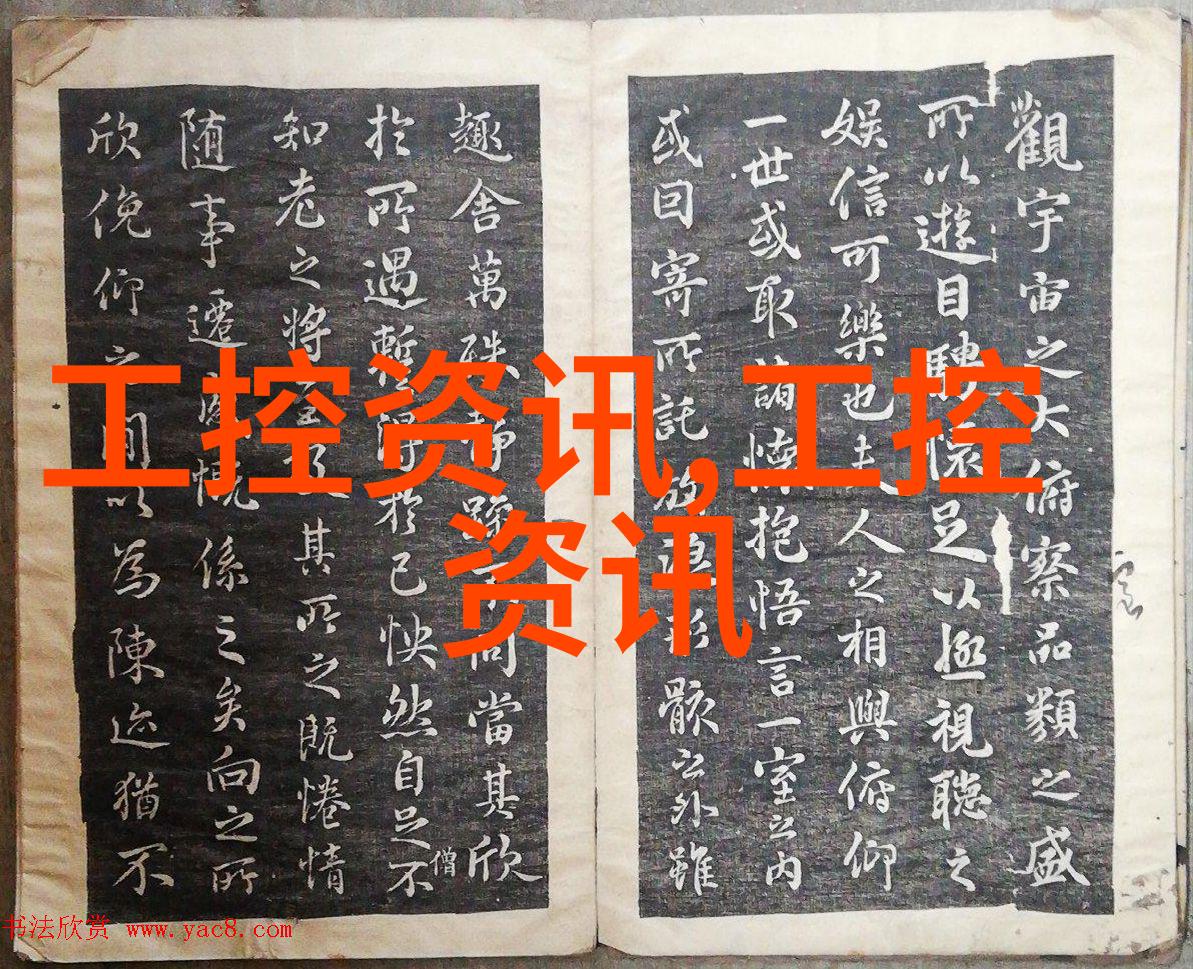 觀宇宙之大俯察品類之盛
所以遊目騁懷足以極視聽之
娛信可樂也夫人之相與俯仰
一世或取諸懷抱悟言一室之內
或因寄所託放浪形骸之外雖
趣舍萬殊靜躁不同當其欣
於所遇暫得於己怏然自足不
僧
知老之將至及其所之既惓情
隨事遷感慨係之矣向之所
欣俛仰之間以為陳迹猶不
工控资讯,工控
资讯
书法欣赏 www.yac8.com